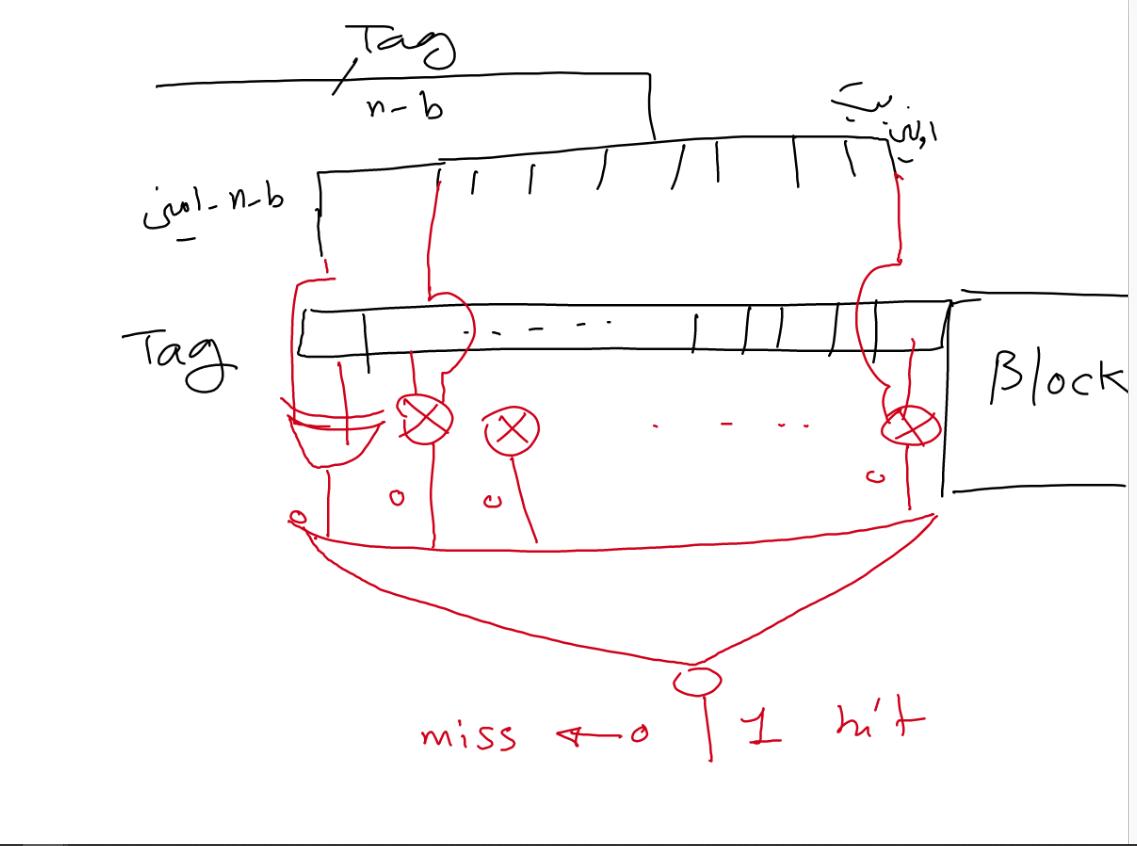 Tag
n-b
اولین بیت
n-b-امین
Tag
Block
0 0 0 0
miss ← 0 1 hit